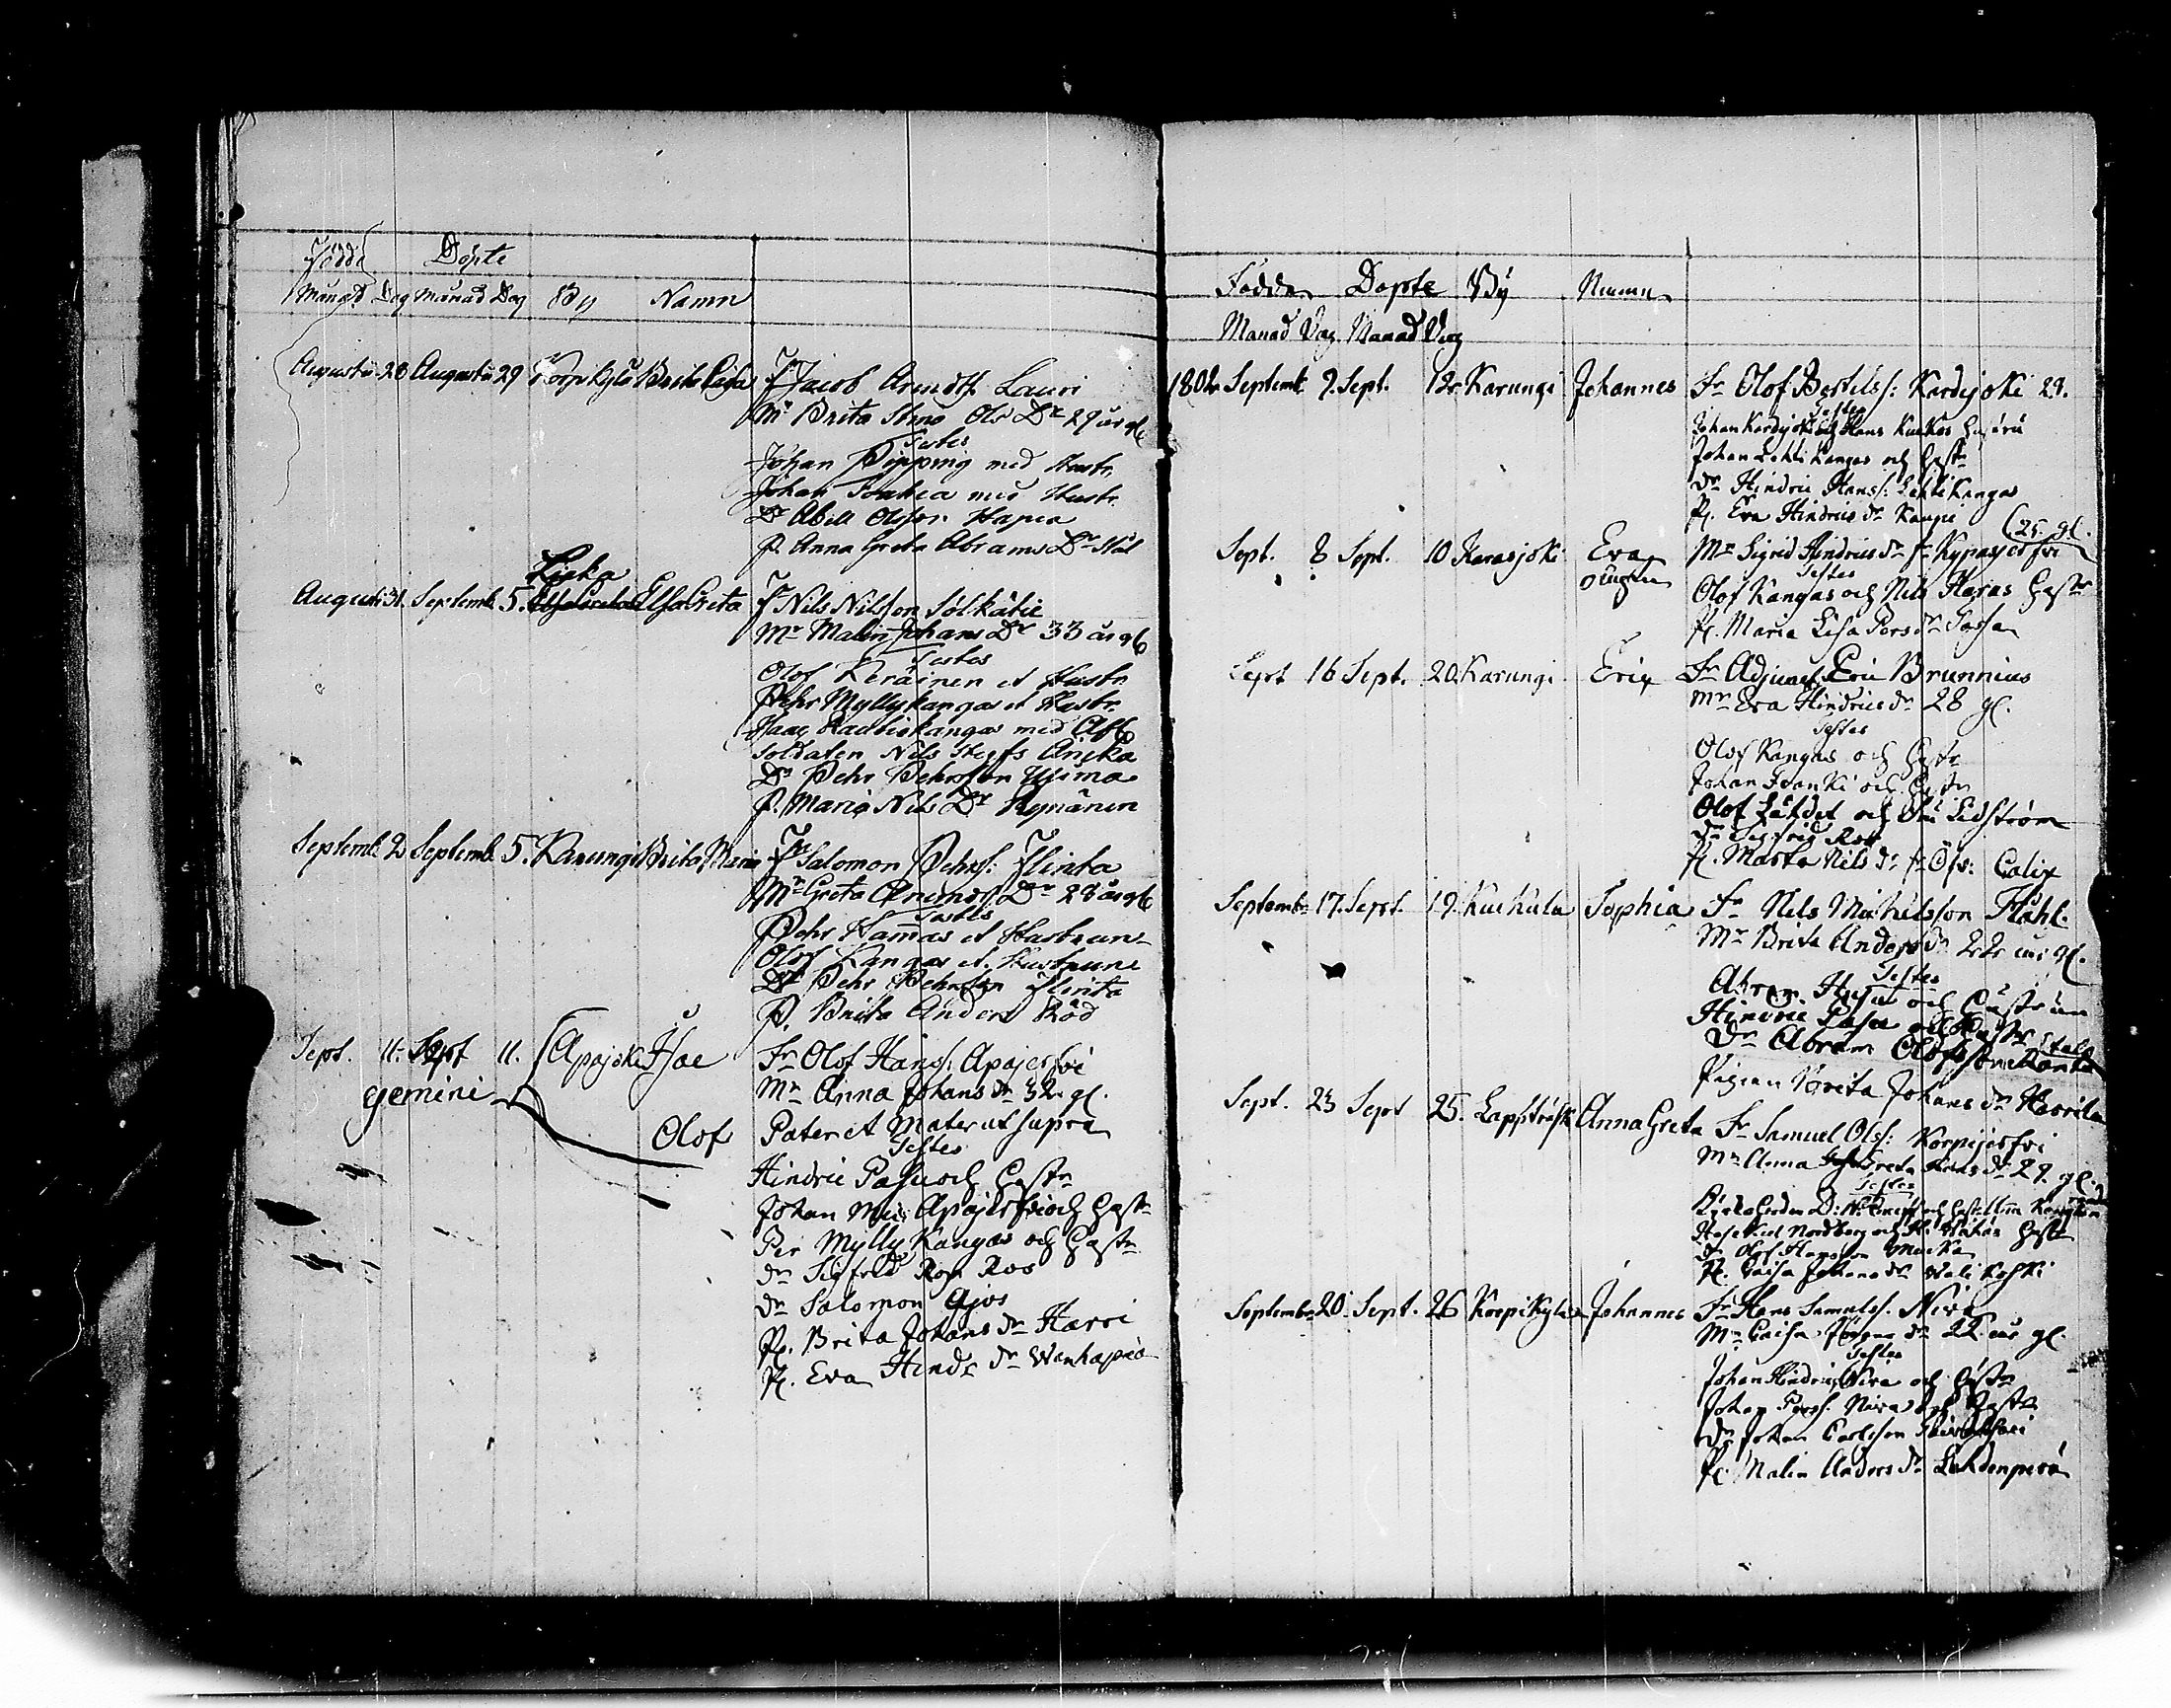 Födde Döpte
Månad Dag Månad Dag By Namn
Augusti 28 Augusti 29 Korpikylä Brita Caisa Fr Jacob Arendtss. Lauri
Mr Brita Stina Ols Dr 29 år gl
Testes
Johan Pipping med Hustr.
Johan med Hustr.
Dr Abell Olsson Hapa
P. Anna Greta Abrams Dr Stål
Augusti 31. Septemb. 5. Liaka Elsa Greta Fr Nils Nilsson
Mr Malin Johans Dr 33 år gl
Testes
Olof Keräinen et Hustr.
Pehr Myllykangas et Hustr.
Isaac Rautiokangas med
Soldaten Nils Anika
Dr Pehr Pehrsson
P. Maria Nils Dr Kynänen
Septemb. 2 Septemb. 5. Karungi Brita Maria Fr Salomon Pehrs: Flinta
Mr Greta Arends Dr 28 år gl
Testes
Pehr Hammas et Hustrun
Olof Kangas et Hustrun
Dr Pehr Pehrsson Flinta
P. Brita Anders Röd
Sept. 11. Sept 11. Apajoki Isac Fr Olof Hanss: Apajerfvi
Mr Anna Johans dr 32 gl.
gemini Olof Pater et Mater ut supra
Testes
Hindric Pasu och Hustr
Johan Apajerfvi och Hustr
Per Mylly Kangas och Hustr
Dr Sigfrid Ross
Dr Salomon Ajos
P. Brita Johans dr Harri
P. Eva Hindr dr Wanhapiä
Födde Döpte By Namn
Månad Dag Månad Dag
1802 Septemb 9. Sept. 12. Karungi Johannes Fr Olof Bertilss: Kardejoki 29.
Testes
Johan Kardijoki och Hans Kuckos hustru
Johan Lehti Kangas och Hustr
Dr Hindric Hanss: Lehti Kangas
P. Eva Hindrics dr Kaupi
(25. gl.
Sept. 8 Sept. 10 Karasjoki Eva Mr Sigrid Hindrics dr fr Kypasjerfvi
oägta
Testes
Olof Kangas och Nils Haras Hustr
P. Maria Lisa Pers dr
Sept 16 Sept. 20. Karungi Eric Fr Adjunct Eric Brunnius
Mr Eva Hindrics dr 28 gl.
Testes
Olof Kangas och Hustr
Johan och Hustr
Olof och Edström
Dr Sigfrid Ross
P. Marta Nils dr fr Öfv: Calix
Septembr 17. Sept. 19. Kuckula Sophia Fr Nils Michelsson Ståhl.
Mr Brita Anders dr 22 år gl.
Testes
Abram och Hustrun
Hindric Pasu och Hustr
Dr Abram Olofsson
Pigan Brita Johans dr
Sept. 23 Sept 25. Lappträsk Anna Greta Fr Samuel Olss: Korpijerfvi
Mr Anna Greta dr 29. gl.
Testes
Nordberg och Hustr
Dr Olof Hansson
P. Caisa Johans dr Wali Koski
Septembr 20 Sept. 26 Korpikylä Johannes Fr Hans Samulss. Niva
Mr Caisa dr 22 år gl.
Testes
Johan Hindrics Niva och Hustr
Johan Perss. Niva och Hustr
Dr Johan Carlsson
P. Malin Anders dr Lahdenperä